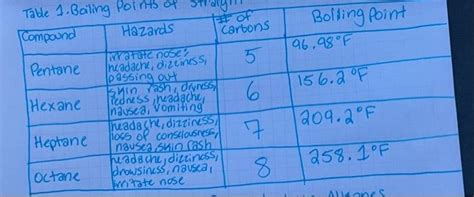 Table 1. Boiling Points of Straight
Compound Hazards # of carbons Boiling Point
Pentane irratate nose, headache, dizziness, passing out 5 96.98°F
Hexane skin rash, dryness, redness, headache, nausea, vomiting 6 156.2°F
Heptane headache, dizziness, loss of consciousness, nausea, skin rash 7 209.2°F
Octane headache, dizziness, drowsiness, nausea, irritate nose 8 258.1°F
Alkanes